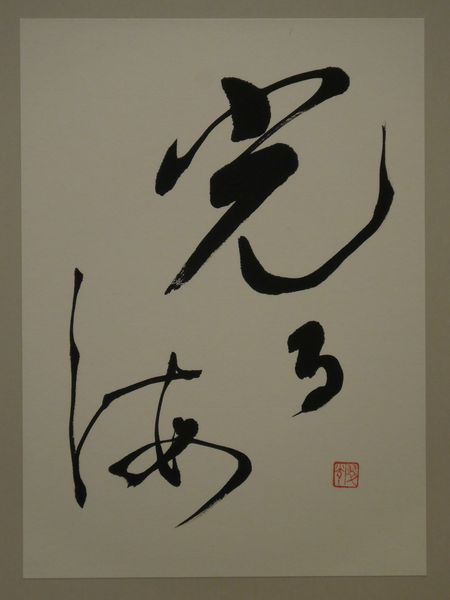 光る
海